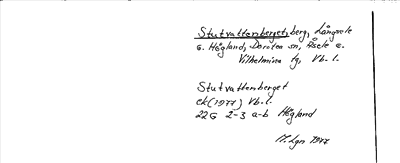 Stutvattenberget, berg, Långsele
G. Högland, Dorotea sn, Åsele c.
Vilhelmina tg, Vb. l.
Stutvattenberget
ek (1977) Vb. l.
22G 2-3 a-b Högland
M. Lgn 1977